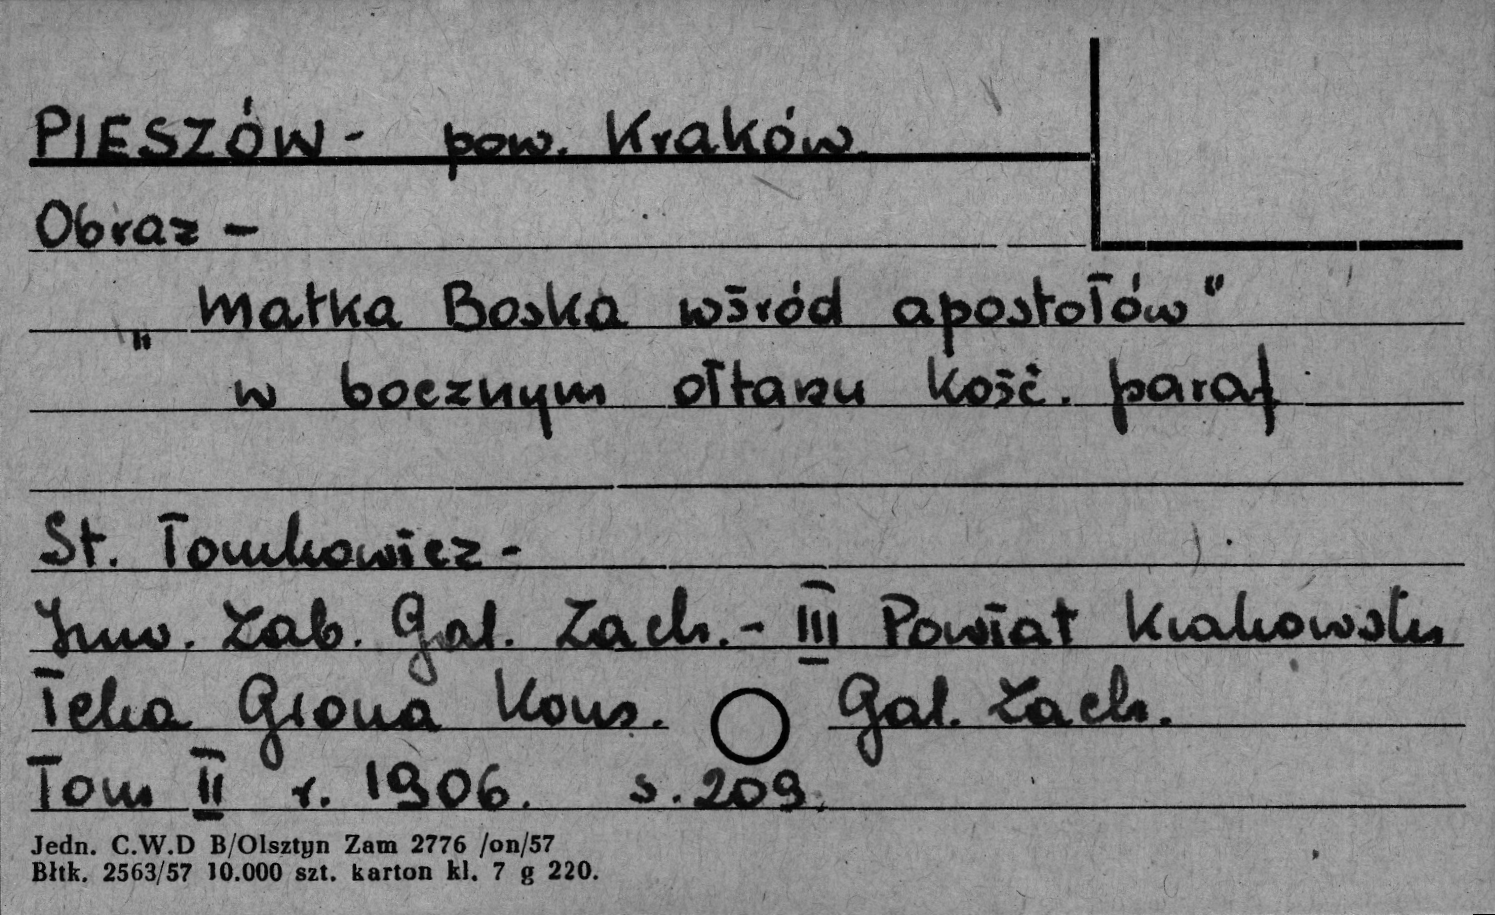 PIESZÓW - pow. Kraków.
Obraz -
„Matka Boska wśród apostołów"
w bocznym ołtarzu kość. paraf.
St. Tomkowicz -
Inw. Zab. Gal. Zach. - III Powiat Krakowski
Teka Grona Kons. Gal. Zach.
Tom II r. 1906. s. 209.
Jedn. C.W.D B/Olsztyn Zam 2776 /on/57
Błtk. 2563/57 10.000 szt. karton kl. 7 g 220.